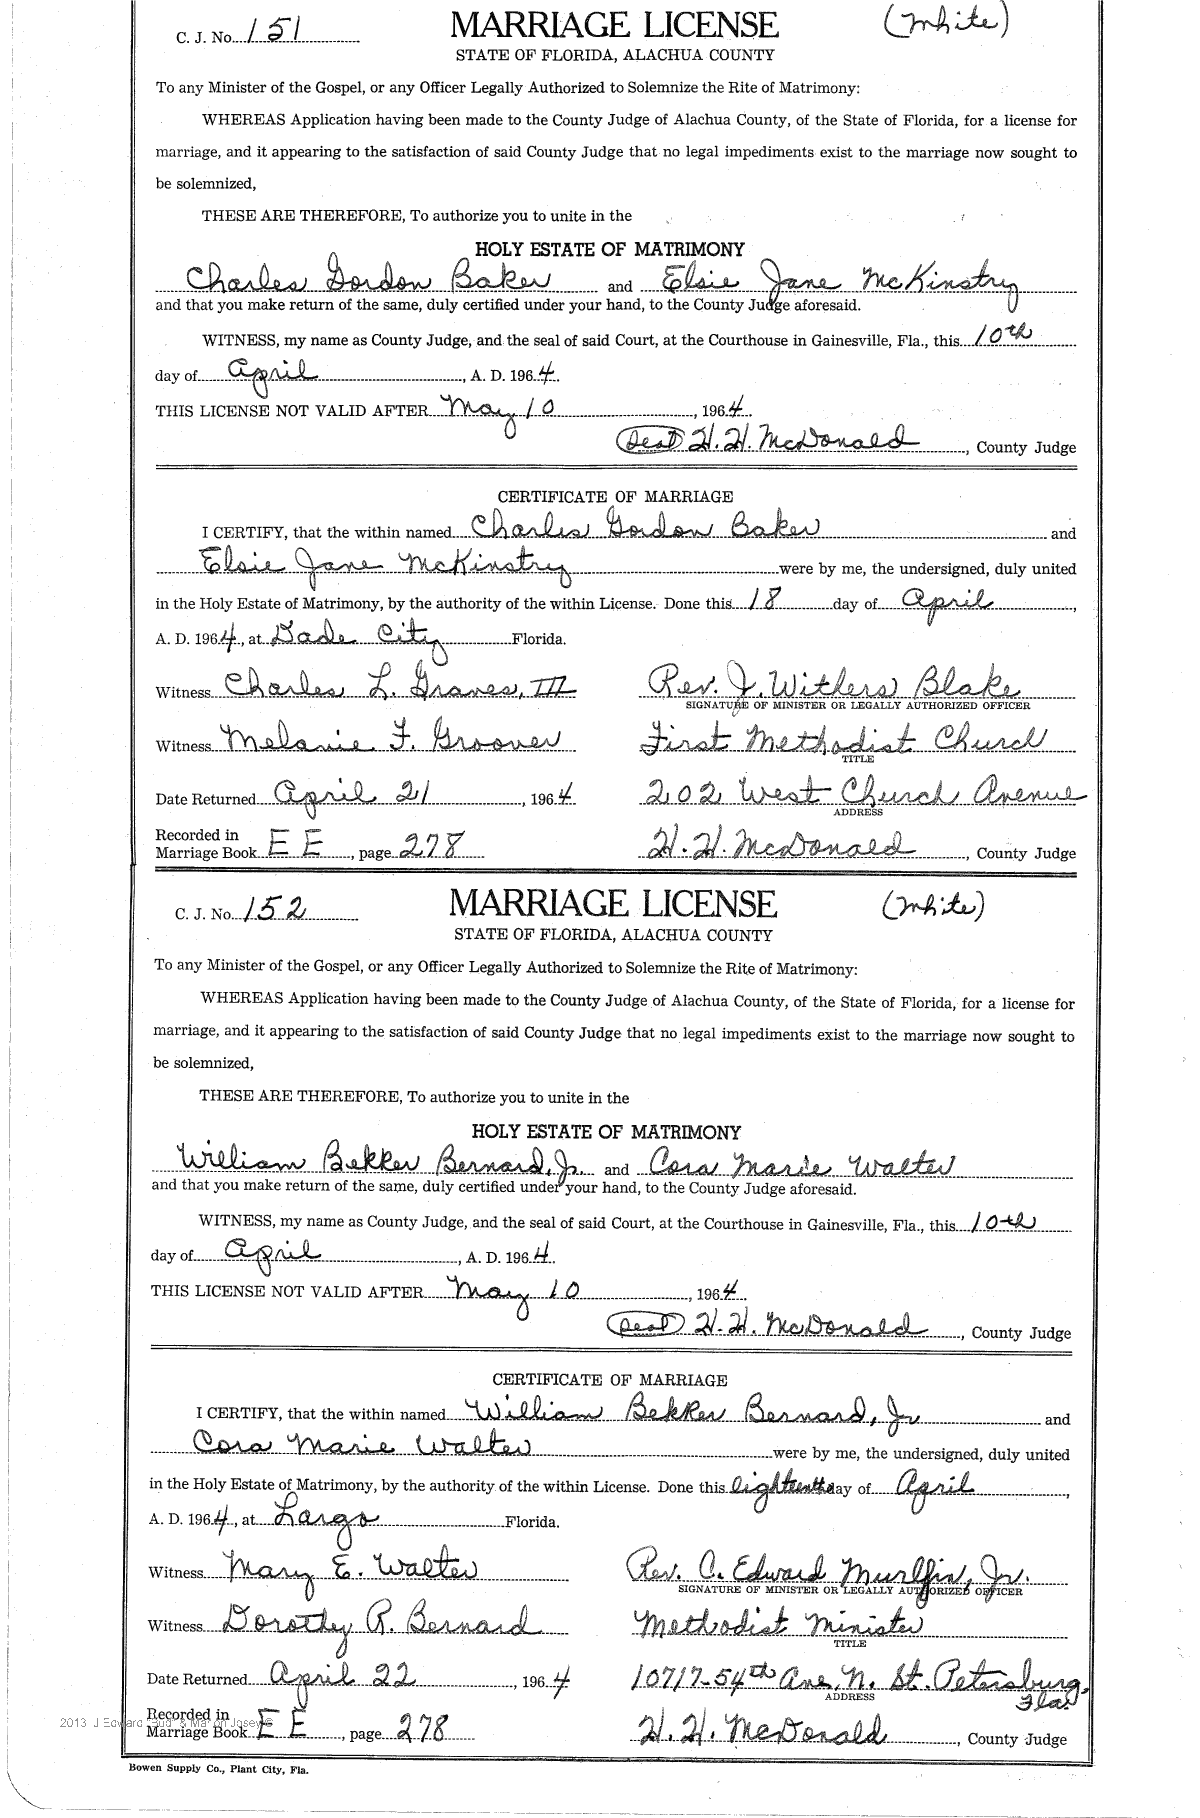 C. J. No. 151 MARRIAGE LICENSE (White)
STATE OF FLORIDA, ALACHUA COUNTY
To any Minister of the Gospel, or any Officer Legally Authorized to Solemnize the Rite of Matrimony:
WHEREAS Application having been made to the County Judge of Alachua County, of the State of Florida, for a license for
marriage, and it appearing to the satisfaction of said County Judge that no legal impediments exist to the marriage now sought to
be solemnized,
THESE ARE THEREFORE, To authorize you to unite in the
HOLY ESTATE OF MATRIMONY
Charles Gordon Baker and Elsie Jane McKinstry
and that you make return of the same, duly certified under your hand, to the County Judge aforesaid.
WITNESS, my name as County Judge, and the seal of said Court, at the Courthouse in Gainesville, Fla., this 10th
day of April, A. D. 1964.
THIS LICENSE NOT VALID AFTER May 10, 1964.
(Seal) H. H. McDonald, County Judge
CERTIFICATE OF MARRIAGE
I CERTIFY, that the within named Charles Gordon Baker and
Elsie Jane McKinstry were by me, the undersigned, duly united
in the Holy Estate of Matrimony, by the authority of the within License. Done this 18 day of April,
A. D. 1964, at Dade City Florida.
Witness Charles L. Graves, III Rev. J. Withers Blake
SIGNATURE OF MINISTER OR LEGALLY AUTHORIZED OFFICER
Witness Melanie F. Groover First Methodist Church
TITLE
Date Returned April 21, 1964 202 West Church Avenue
ADDRESS
Recorded in
Marriage Book E E, page 278 H. H. McDonald, County Judge
C. J. No. 152 MARRIAGE LICENSE (White)
STATE OF FLORIDA, ALACHUA COUNTY
To any Minister of the Gospel, or any Officer Legally Authorized to Solemnize the Rite of Matrimony:
WHEREAS Application having been made to the County Judge of Alachua County, of the State of Florida, for a license for
marriage, and it appearing to the satisfaction of said County Judge that no legal impediments exist to the marriage now sought to
be solemnized,
THESE ARE THEREFORE, To authorize you to unite in the
HOLY ESTATE OF MATRIMONY
William Bekker Bernard, Jr. and Cora Marie Walter
and that you make return of the same, duly certified under your hand, to the County Judge aforesaid.
WITNESS, my name as County Judge, and the seal of said Court, at the Courthouse in Gainesville, Fla., this 10th
day of April, A. D. 1964.
THIS LICENSE NOT VALID AFTER May 10, 1964.
(Seal) H. H. McDonald, County Judge
CERTIFICATE OF MARRIAGE
I CERTIFY, that the within named William Bekker Bernard, Jr and
Cora Marie Walter were by me, the undersigned, duly united
in the Holy Estate of Matrimony, by the authority of the within License. Done this eighteenth day of April,
A. D. 1964, at Largo Florida.
Witness Mary E. Walter Rev. C. Edward Murffin, Jr.
SIGNATURE OF MINISTER OR LEGALLY AUTHORIZED OFFICER
Witness Dorothy R. Bernard Methodist Minister
TITLE
Date Returned April 22, 1964 10717-54th Ave. N. St. Petersburg, Fla.
ADDRESS
Recorded in
Marriage Book E E, page 278 H. H. McDonald, County Judge
Bowen Supply Co., Plant City, Fla.